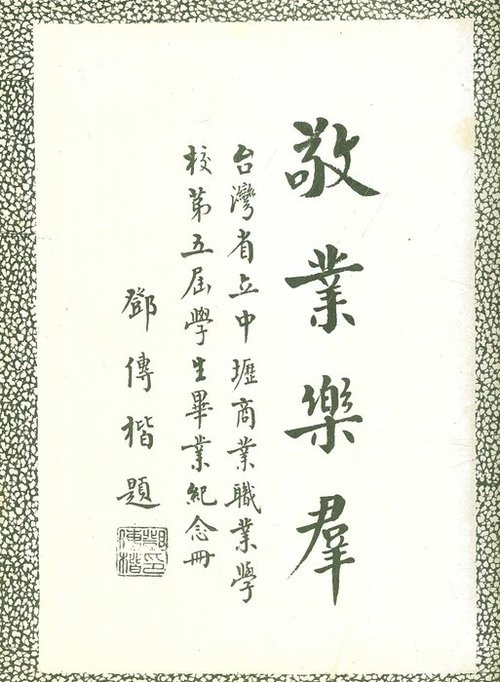 敬業樂羣
台灣省立中壢商業職業學
校第五屆學生畢業紀念冊
鄧傳楷題
鄧印
傳楷